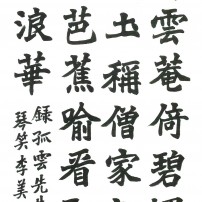 雲菴倚碧
土稱僧家
芭蕉喻看
浪華
録孤雲先生
琴笑李美